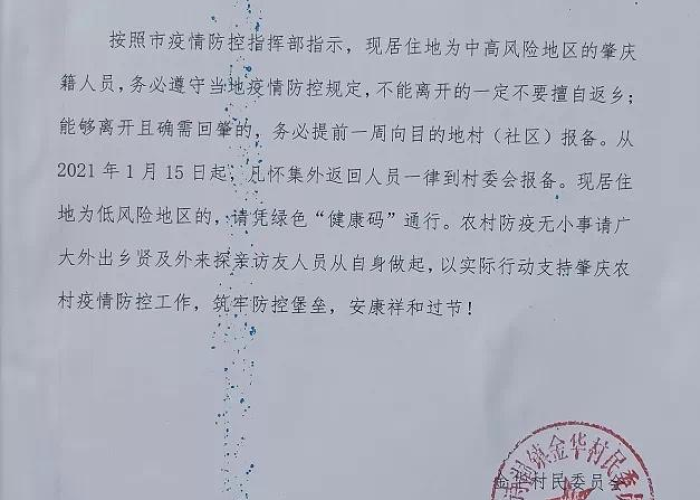 按照市疫情防控指挥部指示，现居住地为中高风险地区的肇庆
籍人员，务必遵守当地疫情防控规定，不能离开的一定不要擅自返乡；
能够离开且确需回肇的，务必提前一周向目的地村（社区）报备。从
2021 年 1 月 15 日起，凡怀集外返回人员一律到村委会报备。现居住
地为低风险地区的，请凭绿色“健康码”通行。农村防疫无小事请广
大外出乡贤及外来探亲访友人员从自身做起，以实际行动支持肇庆农
村疫情防控工作，筑牢防控堡垒，安康祥和过节！
镇金华村民委
金华村民委员会